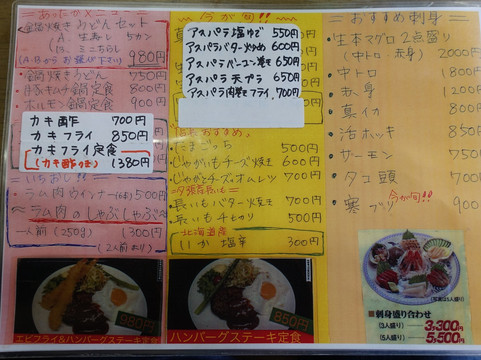 あったかメニュー
鍋焼きうどんセット
A. 生寿し 5カン
B. ミニちらし
(A.Bからお選び下さい) 980円
鍋焼きうどん 750円
豚キムチ鍋定食 800円
ホルモン鍋定食 900円
カキ酢 700円
カキフライ 850円
カキフライ定食
(カキ酢つき) 1380円
いちおし!!
ラム肉ウインナー 500円
ラム肉のしゃぶしゃぶ
一人前 (250g) 1300円
(2人前より)
エビフライ&ハンバーグステーキ定食
今が旬!!
アスパラ塩ゆで 550円
アスパラバター炒め 600円
アスパラベーコン巻き 650円
アスパラ天プラ 650円
アスパラ肉巻きフライ 700円
おすすめ
500円
じゃがいもチーズ焼き 600円
じゃがとチーズオムレツ 700円
夕張長いも
長いもバター焼き 700円
長いも千切り 500円
北海道産
いか塩辛 300円
ハンバーグステーキ定食
おすすめ刺身
生本マグロ2点盛り
(中トロ・赤身) 2000円
中トロ 1800円
赤身 1200円
真イカ 800円
活ホッキ 850円
サーモン 750円
タコ頭 700円
今が旬!!
寒ブリ 900円
(写真は5人盛り)
刺身盛り合わせ
(3人盛り) 3,300円
(5人盛り) 5,500円